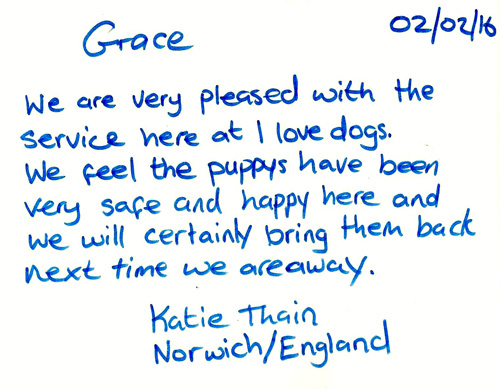 Grace 02/02/16
We are very pleased with the
service here at I love dogs.
We feel the puppys have been
very safe and happy here and
we will certainly bring them back
next time we are away.
Katie Thain
Norwich/England